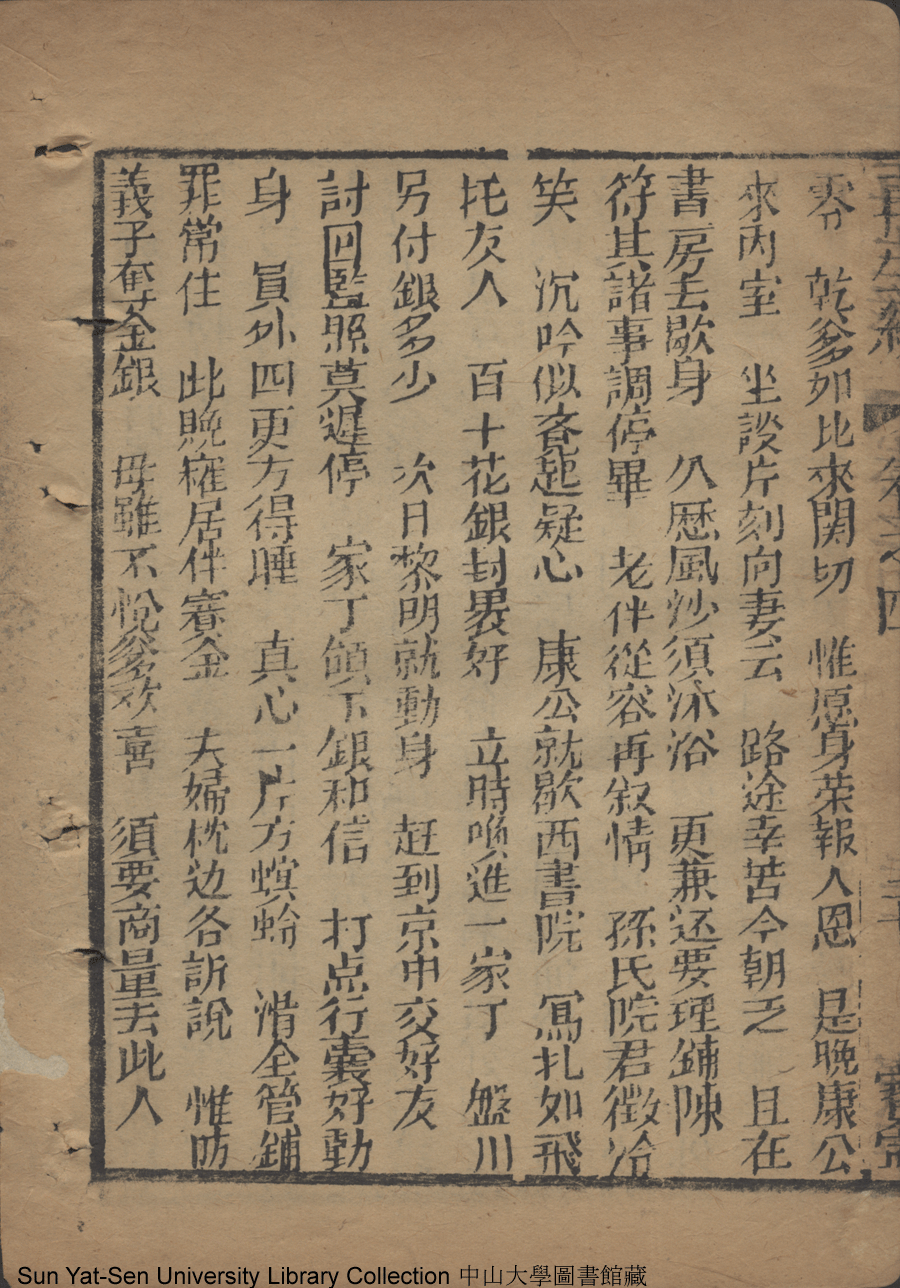 卷之四
零 乾爹如比來関切 惟愿身荣報人恩 是晚康公
來内室 坐談片刻向妻云 路途辛苦今朝乏 且在
書房去歇身 久歷風沙須沐浴 更兼还要理鋪陳
符其諸事調停畢 老伴從容再叙情 孫氏院君微冷
笑 沉吟似吝起疑心 康公就歇西書院 寫扎如飛
托友人 百十花銀封裹好 立時喚進一家丁 盤川
另付銀多少 次日黎明就動身 赶到京中交好友
討回監照莫遲停 家丁領下銀和信 打点行囊好動
身 員外四更方得睡 真心一片方螟蛉 消全管鋪
罪常住 此晚雍居伴賽金 夫婦枕边各訴說 惟防
義子奪金銀 毋雖不悅爹欢喜 須要商量去此人
Sun Yat-Sen University Library Collection 中山大學圖書館藏